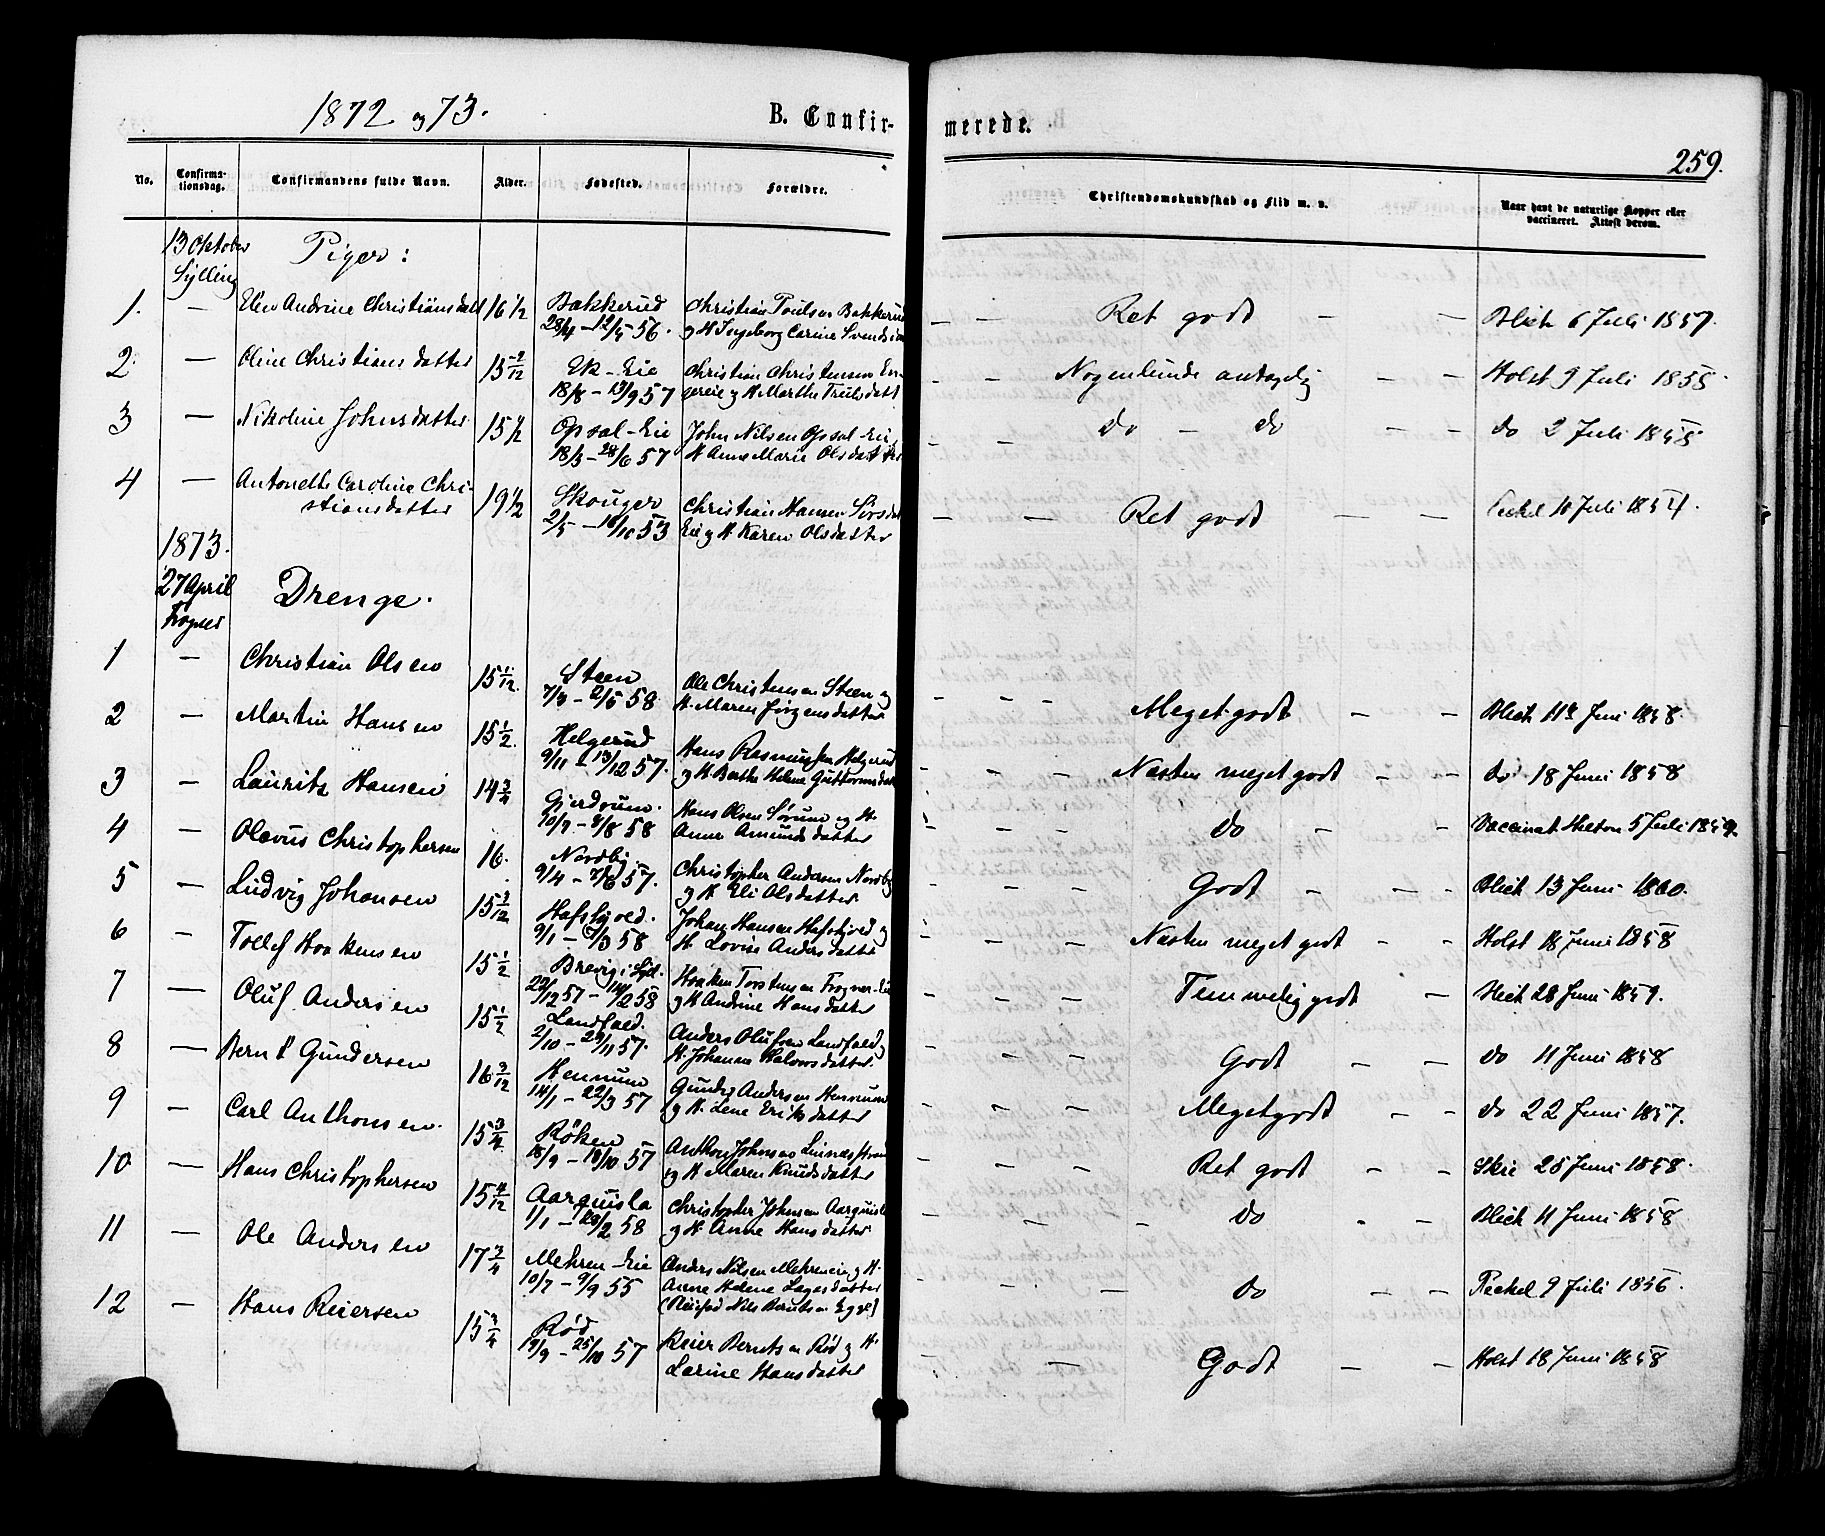 1872 og 73.
B. Confirmerede.
259.
No. Confirmationsdag. Confirmandens fulde Navn. Alder. Fødested. Forældre. Christendomskundskab og Flid m. v. Naar havt de naturlige Kopper eller vaccineret. Attest derom.
13 Oktober Sylling
Piger:
1. — Elen Andrine Christiansdatt 16 1/2 Bakkerud Christian Poulsen Bakkerud — — Ret godt — — Blich 6 Juli 1857.
28/4 — 12/5 56. og H Ingeborg Carine Svendsd
2. — Oline Christiansdatter 15 2/12 Ek-Eie Christian Christensen — — Nogenlunde antagelig — — Holst 9 Juli 1858
18/8 — 13/9 57 og H Marthe Truls datt
3 — Nikoline Johnsdatter 15 1/2 Opsal-Eie John Nilsen Opsal-Eie, — — do — do — — do 2 Juli 1858
18/3 — 28/6 57 H Anne Marie Olsdatter
4 — Antonette Caroline Christiansdatter 19 1/2 Skouger Christian Hansen — — Ret godt — — 10 Juli 1854.
2/5 — 16/10 53 Eie og H Karen Olsdatter
1873.
27 April Frogner
Drenge.
1 — Christian Olsen 15 1/12. Steen Ole Christensen Steen og — — Meget godt — — Blich 11te Juni 1858.
7/3 — 2/5 58 H. Maren Jörgensdatter
2 — Martin Hansen 15 1/2. Helgerud Hans Rasmussen Helgerud — — — Næsten meget godt — — do 18 Juni 1858
9/11 — 13/12 57. og H Berthe Helene Guttormsdatt
3 — Lauritz Hansen 14 3/4 Gjerdrum. Hans Olsen Sørum og H. — — — do — — Vaccinat Helton 5 Juli 1859.
10/7 — 8/8 58 Anne Amunds datter
4 — Olavus Christophersen 16. Nordby. Christopher Andersen Nordby — — — Godt — — — Blich 13 Juni 1860.
9/4 — 7/6 57. og H Eli Olsdatter
5 — Ludvig Johansen 15 3/12 Hafskjold. Johan Hansen Hafskjold og — — — Næsten meget godt — — Holst 18 Juni 1858
9/1 — 7/3 58 H. Lovise Andersdatter
6 — Tollef Haakensen 15 1/2 Brevig i Syl. Haaken Torstensen Frogner-Eie — — — Temmelig godt — 28 Juni 1859.
22/12 57 — 14/2 58 og H Andrine Hansdatter
7 — Oluf Andersen 15 1/2 Landfald. Anders Olufsen Landfald og — — — Godt — — do 11 Juni 1858
2/10 — 29/11 57. H. Johanne Halvorsdatter.
8 — Bernt Gundersen 16 3/12 Hennum Gunder Andersen Hennum — — — Meget godt — — do 22 Juni 1857.
14/1 — 22/3 57 og H. Lene Eriks datter
9 — Carl Anthonsen. 15 3/4 Røken Anthon Johnsen — — — Ret godt — — Skie 25 Juni 1858.
18/9 — 18/10 57 og H Maren Knudsdatter
10 — Hans Christophersen 15 4/12 Aarquisla Christopher Johnsen Aarquisla — — — do - — Blich 11 Juni 1858
1/1 — 28/2 58 og H. Anne Hansdatter
11 — Ole Andersen 17 3/4 Mehren-Eie Anders Nilsen Mehreneie og H. — — — do — — Peckel 9 Juli 1856.
10/7 — 9/9 55 Anne Helene Lagesdatter
(Pleiefad Nils Berntsen Egge)
12 — Hans Reiersen 15 3/4 Rød Reier Berntsen Rød og H. — Godt — — Holst 18 Juni 1858
19/9 — 25/10 57 Larine Hansdatter